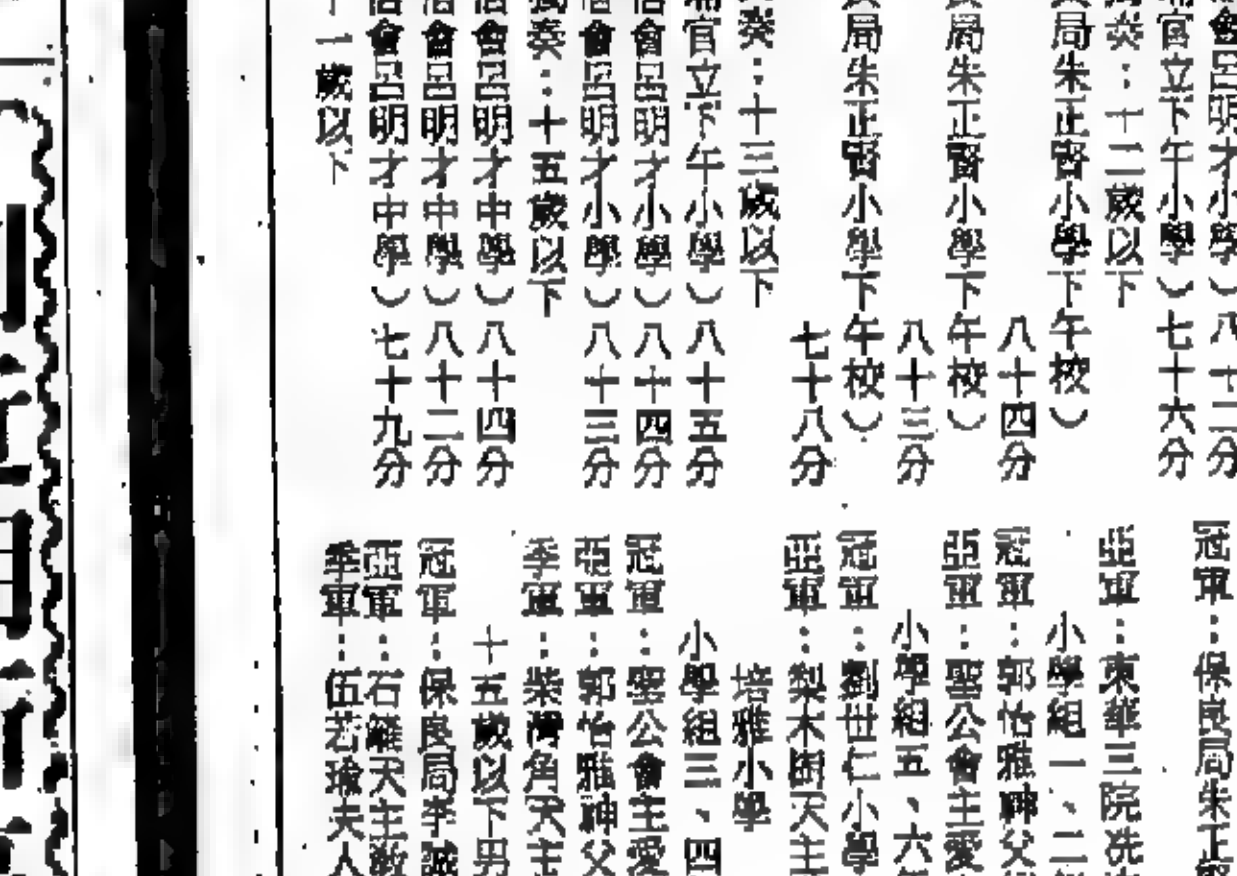 會呂明才小學）八十二分
官立下午小學）七十六分
奏：十二歲以下
局朱正賢小學下午校）
八十四分
局朱正賢小學下午校）
八十三分
局朱正賢小學下午校）
七十八分
奏：十三歲以下
官立下午小學）八十五分
信會呂明才小學）八十四分
信會呂明才小學）八十三分
獨奏：十五歲以下
信會呂明才中學）八十四分
信會呂明才中學）八十二分
信會呂明才中學）七十九分
十一歲以下
冠軍：保良局朱正賢
亞軍：東華三院冼
小學組一、二
冠軍：郭怡雅神父
亞軍：聖公會主愛
小學組五、六
冠軍：劉世仁小學
亞軍：梨木樹天主
培雅小學
小學組三、四
冠軍：聖公會主愛
亞軍：郭怡雅神父
季軍：柴灣角天主
十五歲以下男
冠軍：保良局李誠
亞軍：石籬天主教
季軍：伍若瑜夫人